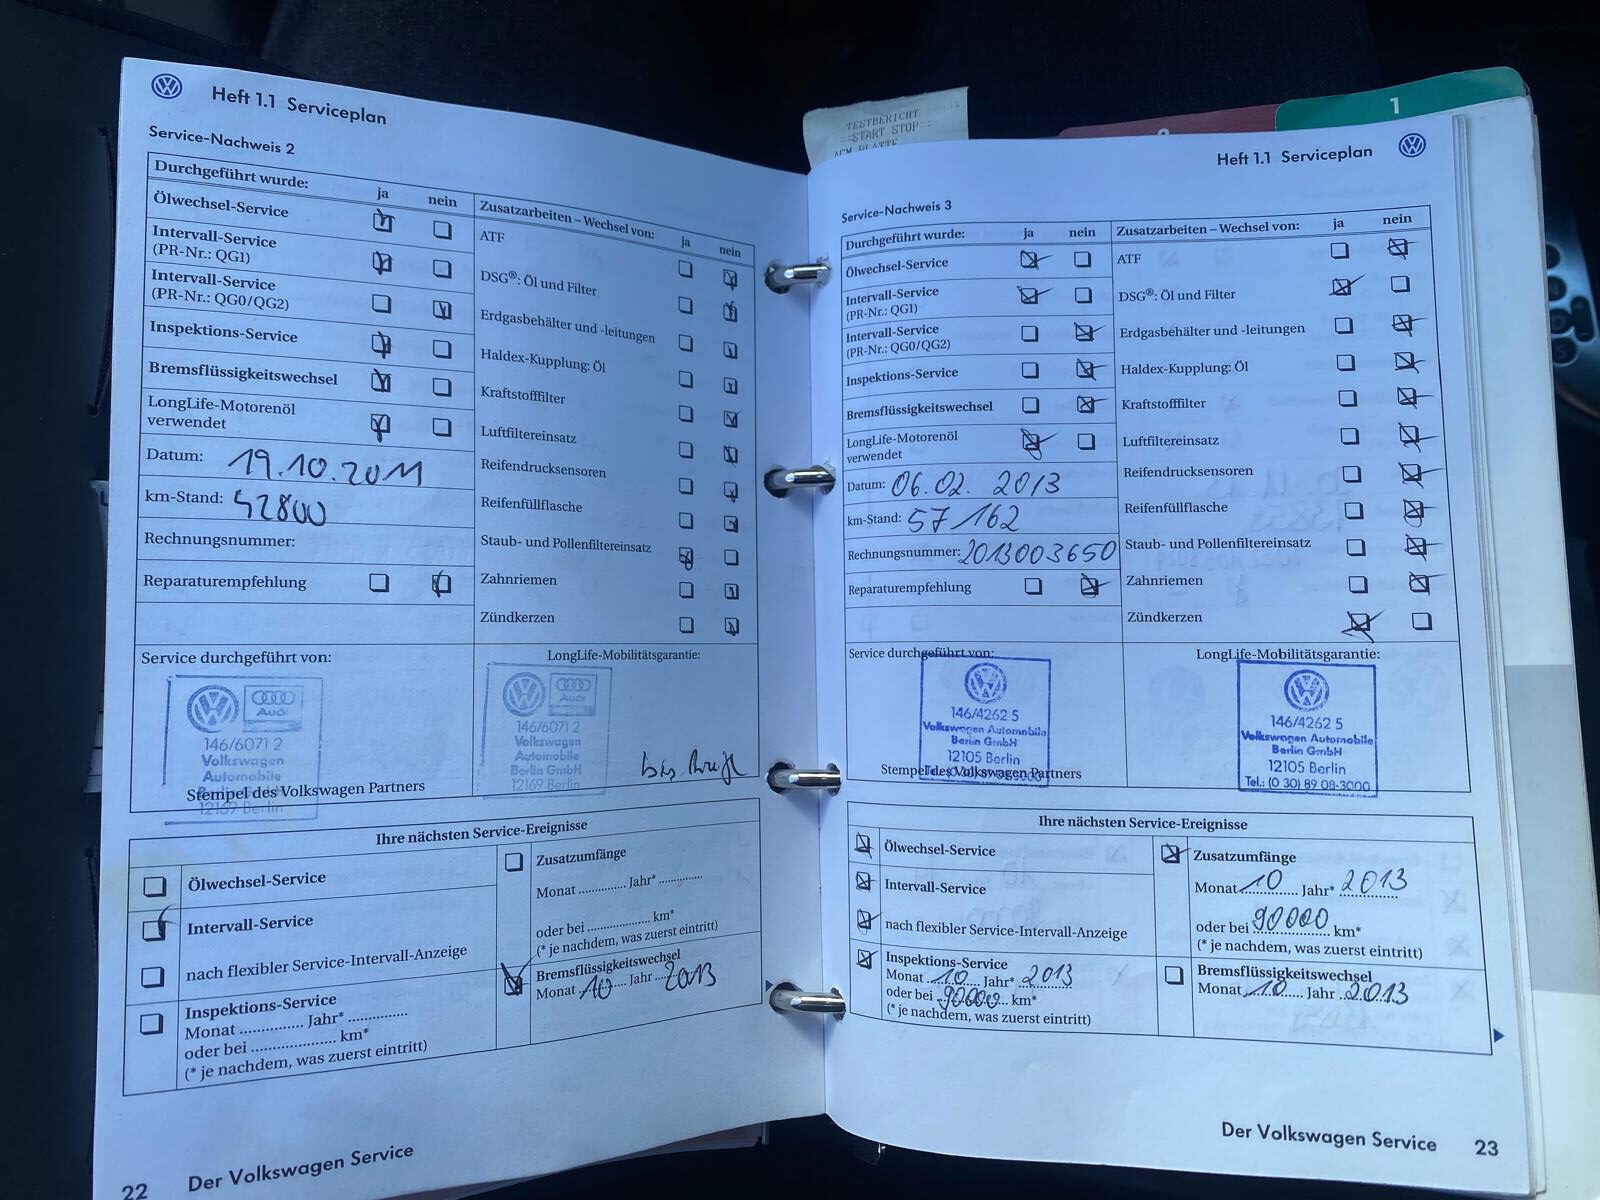 Heft 1.1 Serviceplan
Service-Nachweis 2
Durchgeführt wurde:
ja
nein
Ölwechsel-Service
Intervall-Service
(PR-Nr.: QG1)
Intervall-Service
(PR-Nr.: QG0/QG2)
Inspektions-Service
Bremsflüssigkeitswechsel
LongLife-Motorenöl
verwendet
Datum: 19.10.2011
km-Stand: 42800
Rechnungsnummer:
Reparaturempfehlung
Zusatzarbeiten – Wechsel von:
ja
nein
ATF
DSG®: Öl und Filter
Erdgasbehälter und -leitungen
Haldex-Kupplung: Öl
Kraftstofffilter
Luftfiltereinsatz
Reifendrucksensoren
Reifenfüllflasche
Staub- und Pollenfiltereinsatz
Zahnriemen
Zündkerzen
Service durchgeführt von:
Audi
146/6071 2
Volkswagen
Automobile
Berlin GmbH
12169 Berlin
Stempel des Volkswagen Partners
LongLife-Mobilitätsgarantie:
Audi
146/6071 2
Volkswagen
Automobile
Berlin GmbH
12169 Berlin
Ihre nächsten Service-Ereignisse
Ölwechsel-Service
Intervall-Service
nach flexibler Service-Intervall-Anzeige
Inspektions-Service
Monat ............... Jahr* ..............
oder bei .................... km*
(* je nachdem, was zuerst eintritt)
Zusatzumfänge
Monat ............... Jahr* .............
oder bei .................... km*
(* je nachdem, was zuerst eintritt)
Bremsflüssigkeitswechsel
Monat 10 Jahr 2013
22 Der Volkswagen Service
TESTBERICHT
==START STOP==
AGM PLATTE
1
Heft 1.1 Serviceplan
Service-Nachweis 3
Durchgeführt wurde:
ja
nein
Ölwechsel-Service
Intervall-Service
(PR-Nr.: QG1)
Intervall-Service
(PR-Nr.: QG0/QG2)
Inspektions-Service
Bremsflüssigkeitswechsel
LongLife-Motorenöl
verwendet
Datum: 06.02. 2013
km-Stand: 57 162
Rechnungsnummer: 2013003650
Reparaturempfehlung
Zusatzarbeiten – Wechsel von:
ja
nein
ATF
DSG®: Öl und Filter
Erdgasbehälter und -leitungen
Haldex-Kupplung: Öl
Kraftstofffilter
Luftfiltereinsatz
Reifendrucksensoren
Reifenfüllflasche
Staub- und Pollenfiltereinsatz
Zahnriemen
Zündkerzen
Service durchgeführt von:
146/4262 5
Volkswagen Automobile
Berlin GmbH
12105 Berlin
Stempel des Volkswagen Partners
LongLife-Mobilitätsgarantie:
146/4262 5
Volkswagen Automobile
Berlin GmbH
12105 Berlin
Tel.: (0 30) 89 08-3000
Ihre nächsten Service-Ereignisse
Ölwechsel-Service
Intervall-Service
nach flexibler Service-Intervall-Anzeige
Inspektions-Service
Monat 10 Jahr* 2013
oder bei 90000 km*
(* je nachdem, was zuerst eintritt)
Zusatzumfänge
Monat 10 Jahr* 2013
oder bei 90000 km*
(* je nachdem, was zuerst eintritt)
Bremsflüssigkeitswechsel
Monat 10 Jahr 2013
Der Volkswagen Service 23